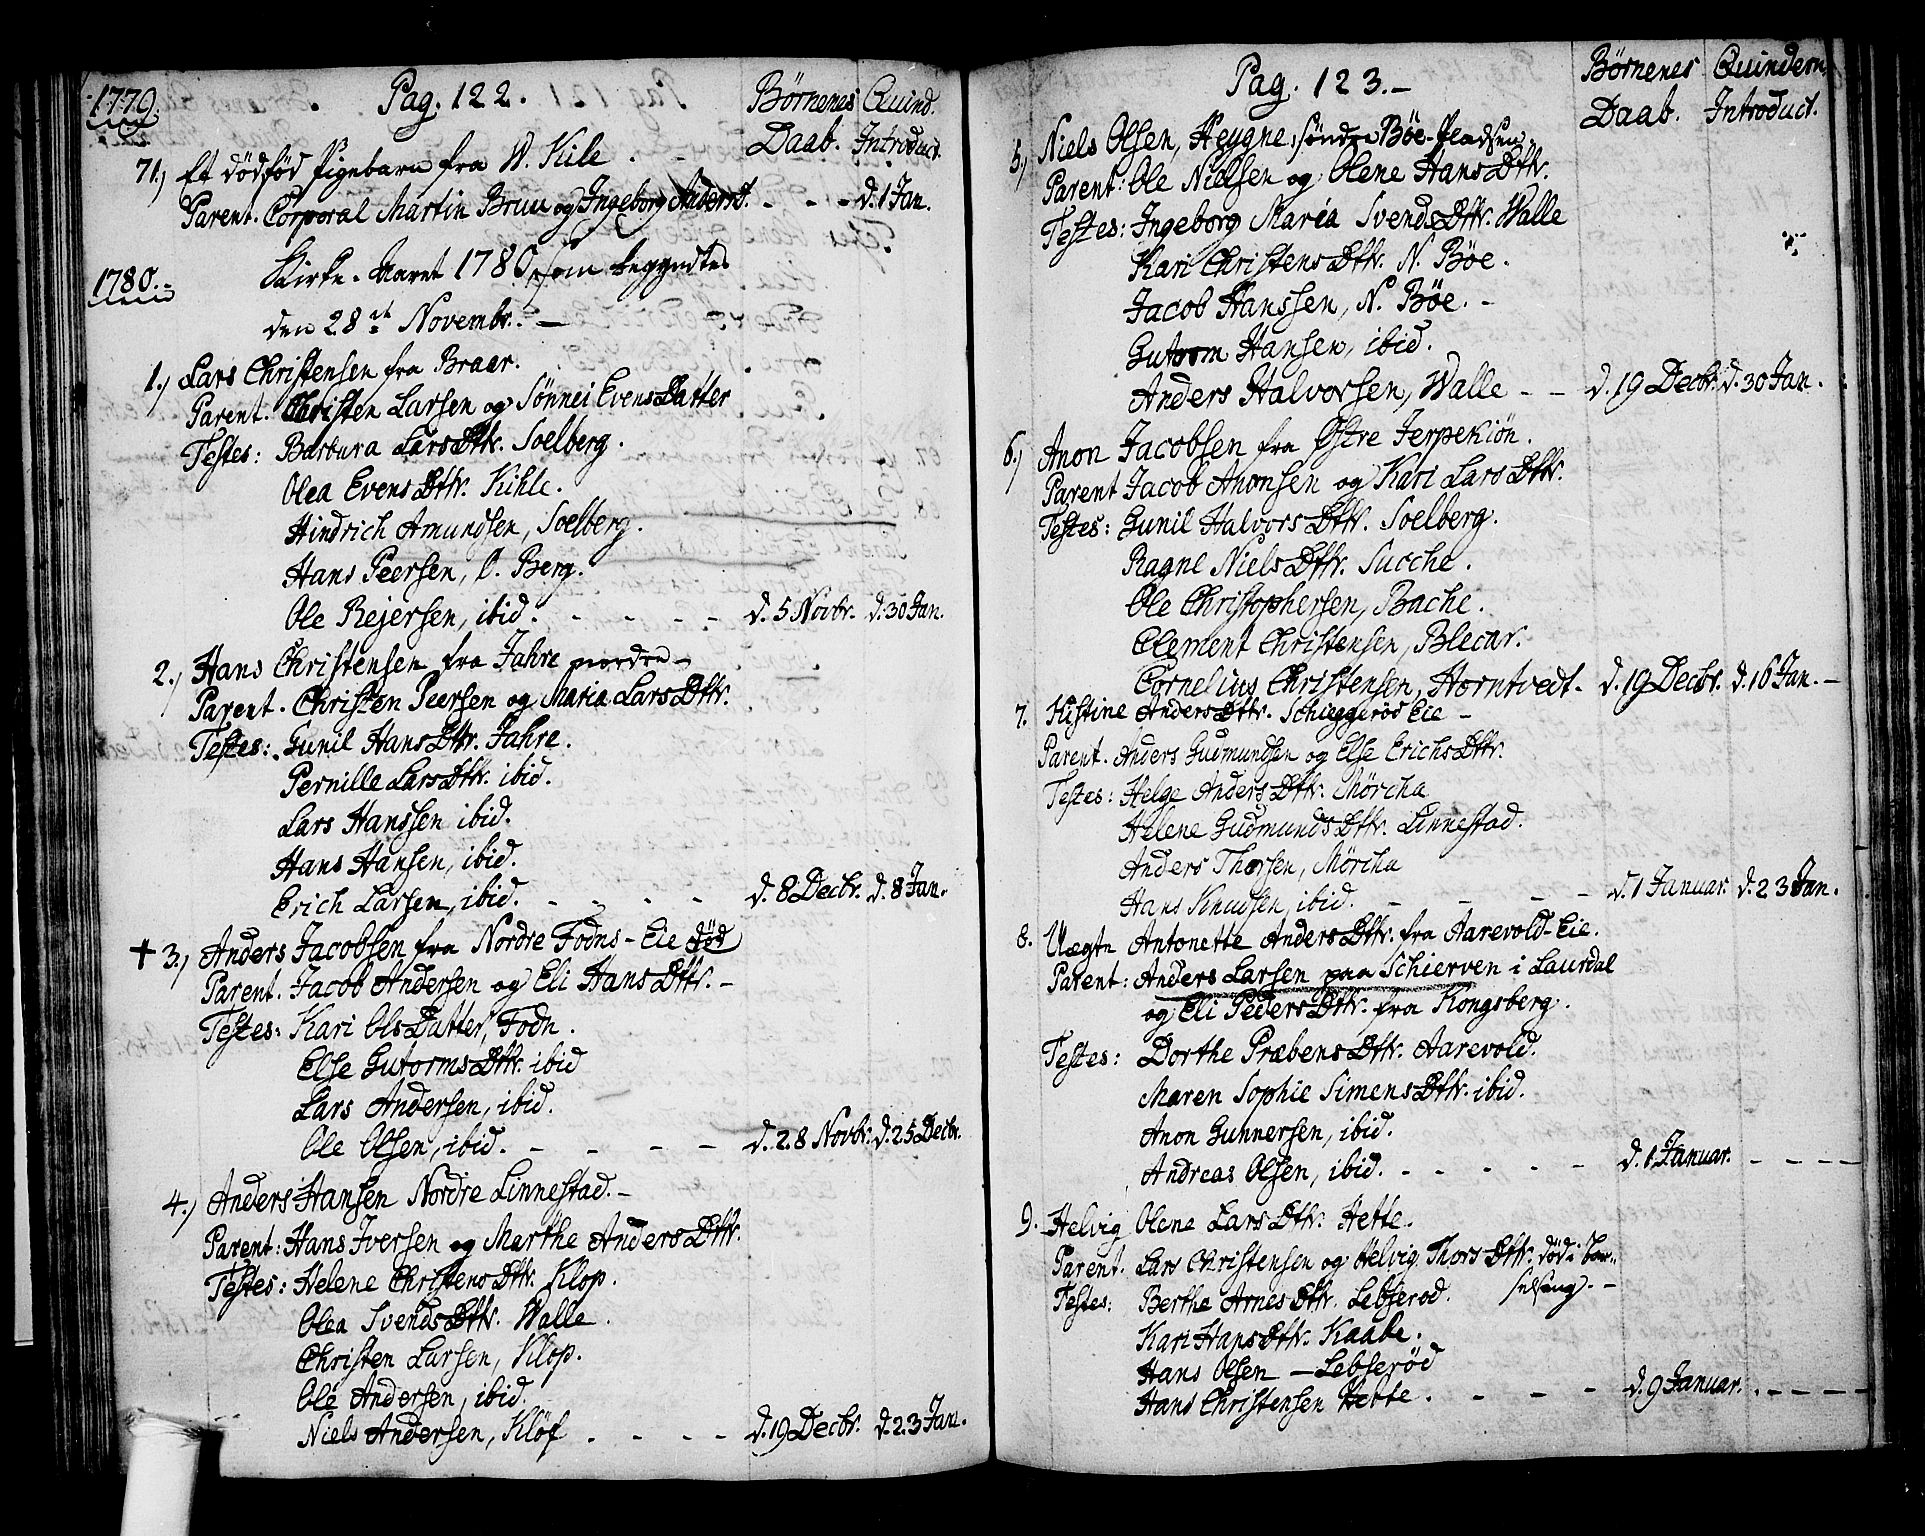 1779.
Pag. 122.
Börnenes Quind.
Daab. Introduct.
71.) Et dödföd Pigebarn fra W. Kile
Parent. Corporal Martin Bruu og Ingeborg Andersd. - - - d. 1 Jan.
1780.
Kirke-Aaret 1780, som begyndtes
den 28de Novembr. —
1.) Lars Christensen fra Braar.
Parent. Christen Larsen og Sönnei Evens Datter
Testes: Barbara Lars Dttr. Soelberg.
Olea Evens Dttr. Kihle.
Hindrich Amundsen, Soelberg.
Hans Peersen, O. Berg.
Ole Rejersen, ibid. - - - - d. 5 Novbr. d. 30 Jan.
2.) Hans Christensen fra Jahre nordre -
Parent. Christen Peersen og Maria Lars Dttr.
Testes: Gunil Hans Dttr. Jahre.
Pernille Lars Dttr. ibid.
Lars Hanssen ibid.
Hans Hansen, ibid.
Erich Larsen, ibid. - - - - d. 8 Decbr. d. 8 Jan.
+ 3.) Anders Jacobsen fra Nordre Fodns-Eie död
Parent. Jacob Andersen og Eli Hans Dttr. -
Testes: Kari Ols Datter, Fodn.
Else Gutorms Dttr. ibid
Lars Andersen, ibid.
Ole Olsen, ibid. - - - - d. 28 Novbr. d. 25 Decbr.
4.) Anders Hansen Nordre Linnestad. -
Parent: Hans Iversen og Marthe Anders Dttr.
Testes: Helene Christens Dttr. Klop.
Olea Svends Dttr. Walle.
Christen Larsen, Klop.
Ole Andersen, ibid.
Niels Andersen, Klöf - - - - d. 19 Decbr. d. 23 Jan.
Pag. 123. -
Börnenes Quindern.
Daab. Introduct.
5.) Niels Olsen, Heygne, söndre Böe-Pladsen
Parent: Ole Nielsen og Olene Hans Dttr.
Testes: Ingeborg Maria Svends Dttr. Walle
Kari Christens Dttr. N. Böe.
Jacob Hanssen, N. Böe. -
Gutorm Hansen, ibid.
Anders Halvorsen, Walle - - d. 19 Decbr. d. 30 Jan.
6.) Anon Jacobsen fra Östre Jerpekiön.
Parent Jacob Anonsen og Kari Lars Dttr.
Testes: Gunil Halvors Dttr. Soelberg.
Ragne Niels Dttr. Sucche.
Ole Christophersen, Bache.
Clement Christensen, Blecar.
Cornelius Christensen, Horntvedt. d. 19 Decbr. d. 16 Jan. -
7. Kistine Anders Dttr. Schieggeröd Eie -
Parent. Anders Gudmundsen og Else Erichs Dttr.
Testes: Helge Anders Dttr. Mörcha
Helene Gudmunds Dttr. Linnestad.
Anders Thorsen, Mörcha
Hans Knudsen, ibid. - - - - d. 1 Januar. d. 23 Jan.
8. Uægte Antonette Anders Dttr. fra Aarevold-Eie.
Parent: Anders Larsen paa Schierven i Laurdal
og Eli Peders Dttr. fra Kongsberg.
Testes: Dorthe Præbens Dttr. Aarevold.
Maren Sophie Simens Dttr. ibid.
Anon Gunnersen, ibid.
Andreas Olsen, ibid. - - - - - d. 1 Januar. - - - -
9. Helvig Olene Lars Dttr. Hette.
Parent. Lars Christensen og Helvig Thors Dttr. död i Bar-
selseng. -
Testes: Berthe Arnes Dttr. Lebseröd.
Kari Hans Dttr. Kaabe.
Hans Olsen - Lebseröd
Hans Christensen Hette. - - - - d. 9 Januar. - - - - -